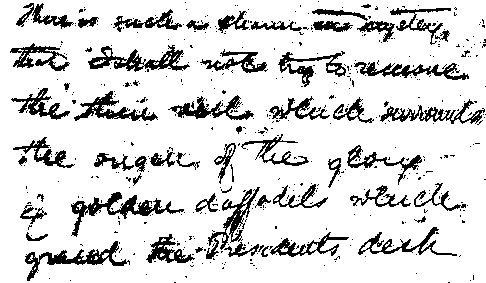 There is such a charm in mystery
that I shall not try to remove
the thin veil which surrounds
the origin of the glory
of golden daffodils which
graced the Presidents desk